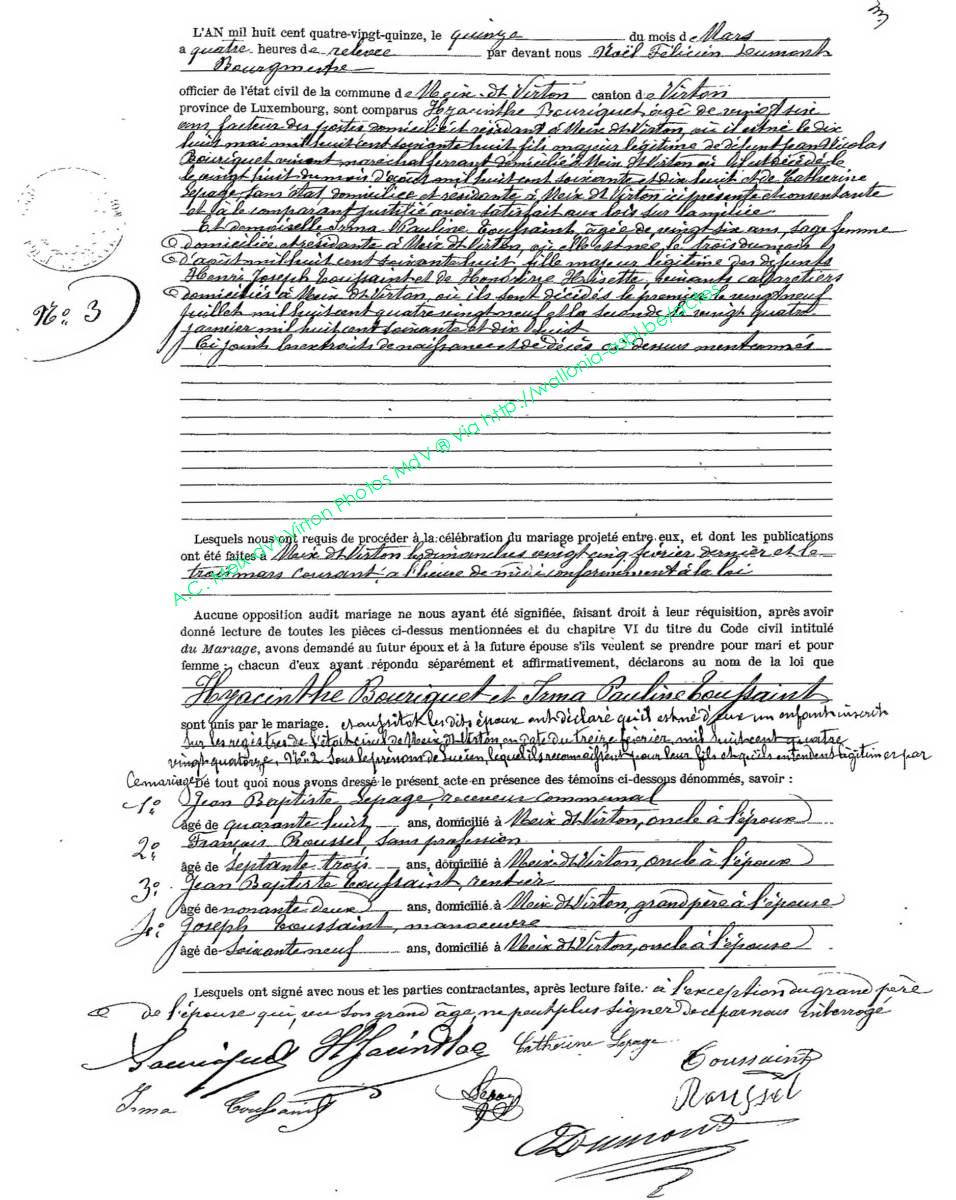 3
L'AN mil huit cent quatre-vingt-quinze, le quinze du mois de Mars
a quatre heures de relevée par devant nous Noël Félicien Dumont
Bourgmestre
officier de l'état civil de la commune de Meix-dt-Virton canton de Virton
province de Luxembourg, sont comparus Hyacinthe Bouriguet âgé de vingt six
ans, facteur des postes domicilié et résidant à Meix dt Virton, où il est né le dix
huit mai mil huit cent soixante huit, fils majeur légitime de défunt Jean Nicolas
Bouriquet vivant maréchal ferrant domicilié à Meix dt Virton où il est décédé le
le vingt huit du mois d'août mil huit cent soixante et dix huit et de Catherine
Lepage sans état, domiciliée et résidante à Meix dt Virton ici présente et consentante
et à le comparant justifié avoir satisfait aux lois sur la milice
Et demoiselle Irma Pauline Toussaint, âgée de vingt six ans, sage femme
domiciliée et résidante à Meix dt Virton, où elle est née le trois du mois
d'août mil huit cent soixante huit, fille majeur légitime des défunts
Henri Joseph Toussaint et de Hondrine Élisette, vivants
domiciliés à Meix dt Virton, où ils sont décédés le premier le vingt neuf
juillet mil huit cent quatre vingt neuf et la seconde le vingt quatre
janvier mil huit cent soixante et dix huit
Ci joints les extraits de naissance et de décès ci dessus mentionnés
No: 3
Lesquels nous ont requis de procéder à la célébration du mariage projeté entre eux, et dont les publications
ont été faites à Meix dt Virton les dimanches vingt cinq février dernier et le
trois mars courant à l'heure de midi conformément à la loi
Aucune opposition audit mariage ne nous ayant été signifiée, faisant droit à leur réquisition, après avoir
donné lecture de toutes les pièces ci-dessus mentionnées et du chapitre VI du titre du Code civil intitulé
du Mariage, avons demandé au futur époux et à la future épouse s'ils veulent se prendre pour mari et pour
femme ; chacun d'eux ayant répondu séparément et affirmativement, déclarons au nom de la loi que
Hyacinthe Bouriguet et Irma Pauline Toussaint
sont unis par le mariage. et aussitôt les dits époux ont déclaré qu'il est né d'eux un enfant inscrit
sur les registres de l'état civil de Meix dt Virton en date du treize février mil huit cent quatre
vingt quatorze, No 2 sous le prénom de Lucien, lequel ils reconnaissent pour leur fils et qu'ils entendent légitimer par
ce mariage De tout quoi nous avons dressé le présent acte en présence des témoins ci-dessous dénommés, savoir :
1o: Jean Baptiste Lepage, receveur communal
âgé de quarante huit ans, domicilié à Meix dt Virton, oncle à l'époux
2o: François Roussel, sans profession
âgé de septante trois ans, domicilié à Meix dt Virton, oncle à l'époux
3o: Jean Baptiste Toussaint, rentier
âgé de nonante deux ans, domicilié à Meix dt Virton, grand père à l'épouse
4o: Joseph Toussaint, manoeuvre
âgé de soixante neuf ans, domicilié à Meix dt Virton, oncle à l'épouse
Lesquels ont signé avec nous et les parties contractantes, après lecture faite. à l'exception du grand père
de l'épouse qui, vu son grand âge, ne peut plus signer de ce par nous interrogé
Bouriguet Hyacinthe Catherine Lepage Toussaint
Irma Toussaint Lepage Roussel
Dumont
A.C. Meix-dvt-Virton Photos MdV ® Via http://wallonia-asbl.be/actes